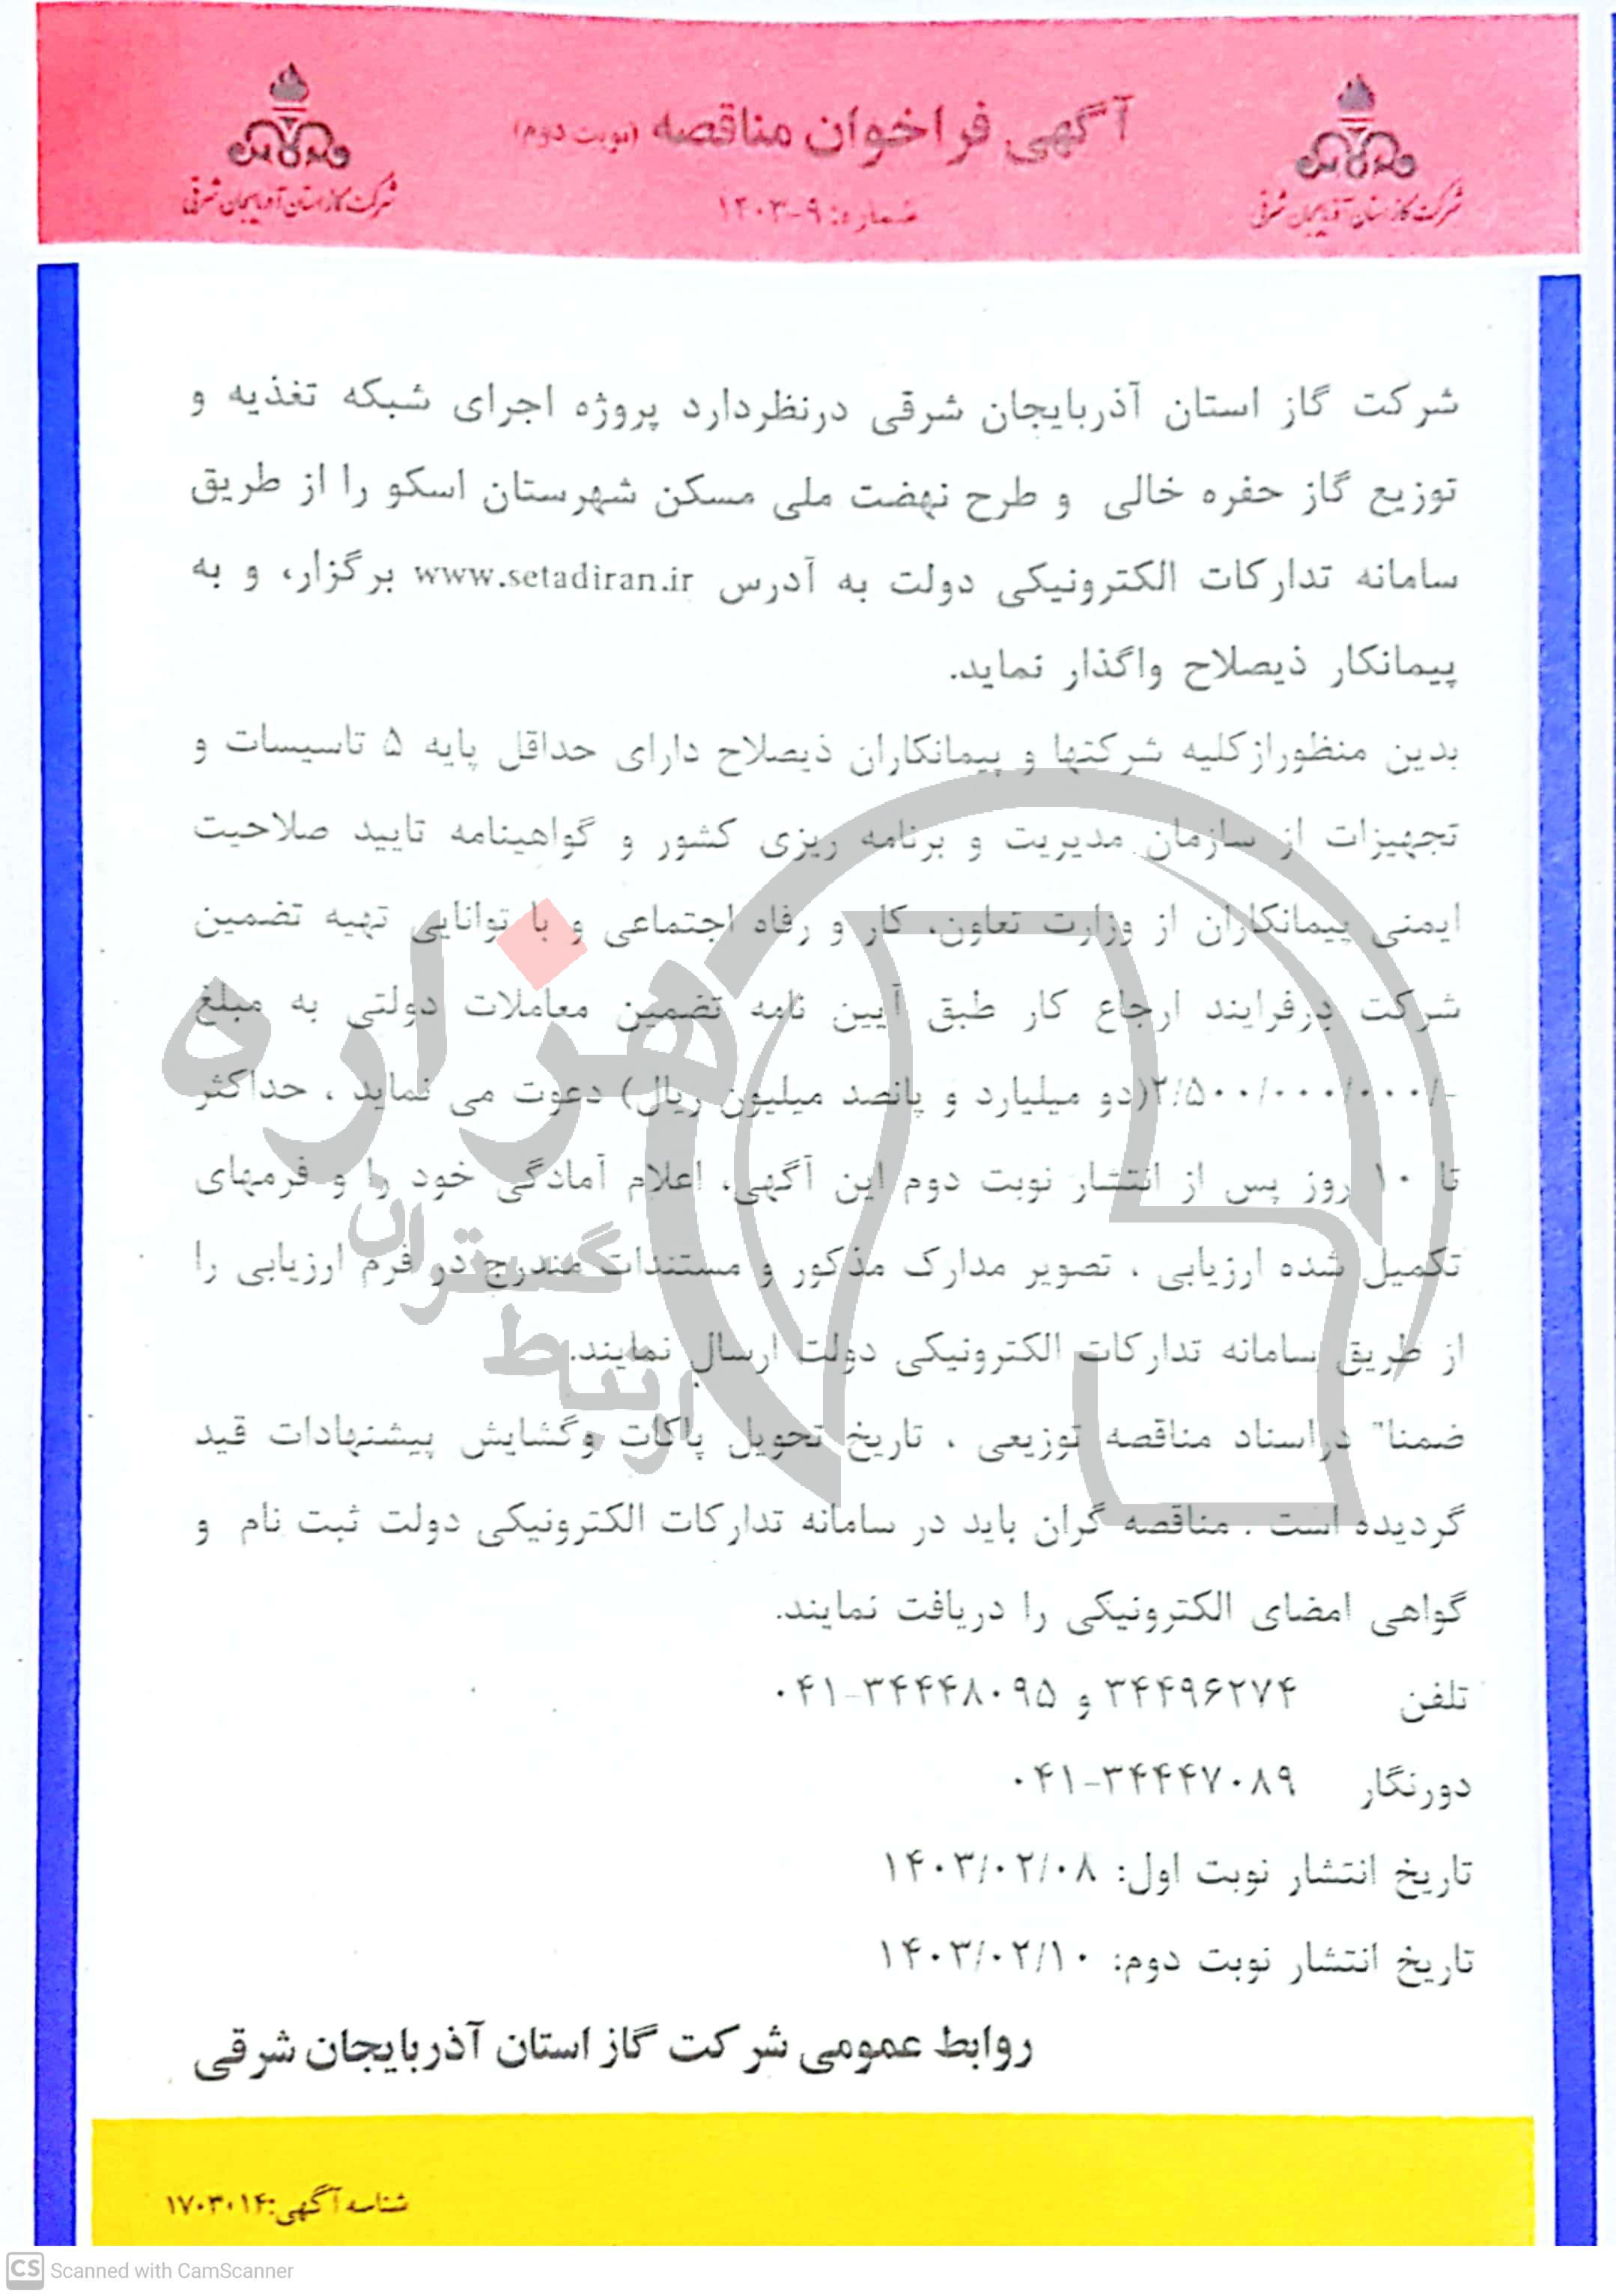 آگهی فراخوان مناقصه (نوبت دوم)
شماره: ۹-۱۴۰۳
شرکت گاز استان آذربایجان شرقی
شرکت گاز استان آذربایجان شرقی
شرکت گاز استان آذربایجان شرقی درنظردارد پروژه اجرای شبکه تغذیه و
توزیع گاز حفره خالی و طرح نهضت ملی مسکن شهرستان اسکو را از طریق
سامانه تدارکات الکترونیکی دولت به آدرس www.setadiran.ir برگزار، و به
پیمانکار ذیصلاح واگذار نماید.
بدین منظورازکلیه شرکتها و پیمانکاران ذیصلاح دارای حداقل پایه ۵ تاسیسات و
تجهیزات از سازمان مدیریت و برنامه ریزی کشور و گواهینامه تایید صلاحیت
ایمنی پیمانکاران از وزارت تعاون، کار و رفاه اجتماعی و با توانایی تهیه تضمین
شرکت درفرایند ارجاع کار طبق آیین نامه تضمین معاملات دولتی به مبلغ
۲/۵۰۰/۰۰۰/۰۰۰/-(دو میلیارد و پانصد میلیون ریال) دعوت می نماید ، حداکثر
تا ۱۰ روز پس از انتشار نوبت دوم این آگهی، اعلام آمادگی خود را و فرمهای
تکمیل شده ارزیابی ، تصویر مدارک مذکور و مستندات مندرج در فرم ارزیابی را
از طریق سامانه تدارکات الکترونیکی دولت ارسال نمایند.
ضمنا" دراسناد مناقصه توزیعی ، تاریخ تحویل پاکات وگشایش پیشنهادات قید
گردیده است . مناقصه گران باید در سامانه تدارکات الکترونیکی دولت ثبت نام و
گواهی امضای الکترونیکی را دریافت نمایند.
تلفن ۳۴۴۹۶۲۷۴ و ۳۴۴۴۸۰۹۵-۰۴۱
دورنگار ۳۴۴۴۷۰۸۹-۰۴۱
تاریخ انتشار نوبت اول: ۱۴۰۳/۰۲/۰۸
تاریخ انتشار نوبت دوم: ۱۴۰۳/۰۲/۱۰
روابط عمومی شرکت گاز استان آذربایجان شرقی
شناسه آگهی:۱۷۰۳۰۱۴
هزاره
گستران
ارتباط
CS Scanned with CamScanner